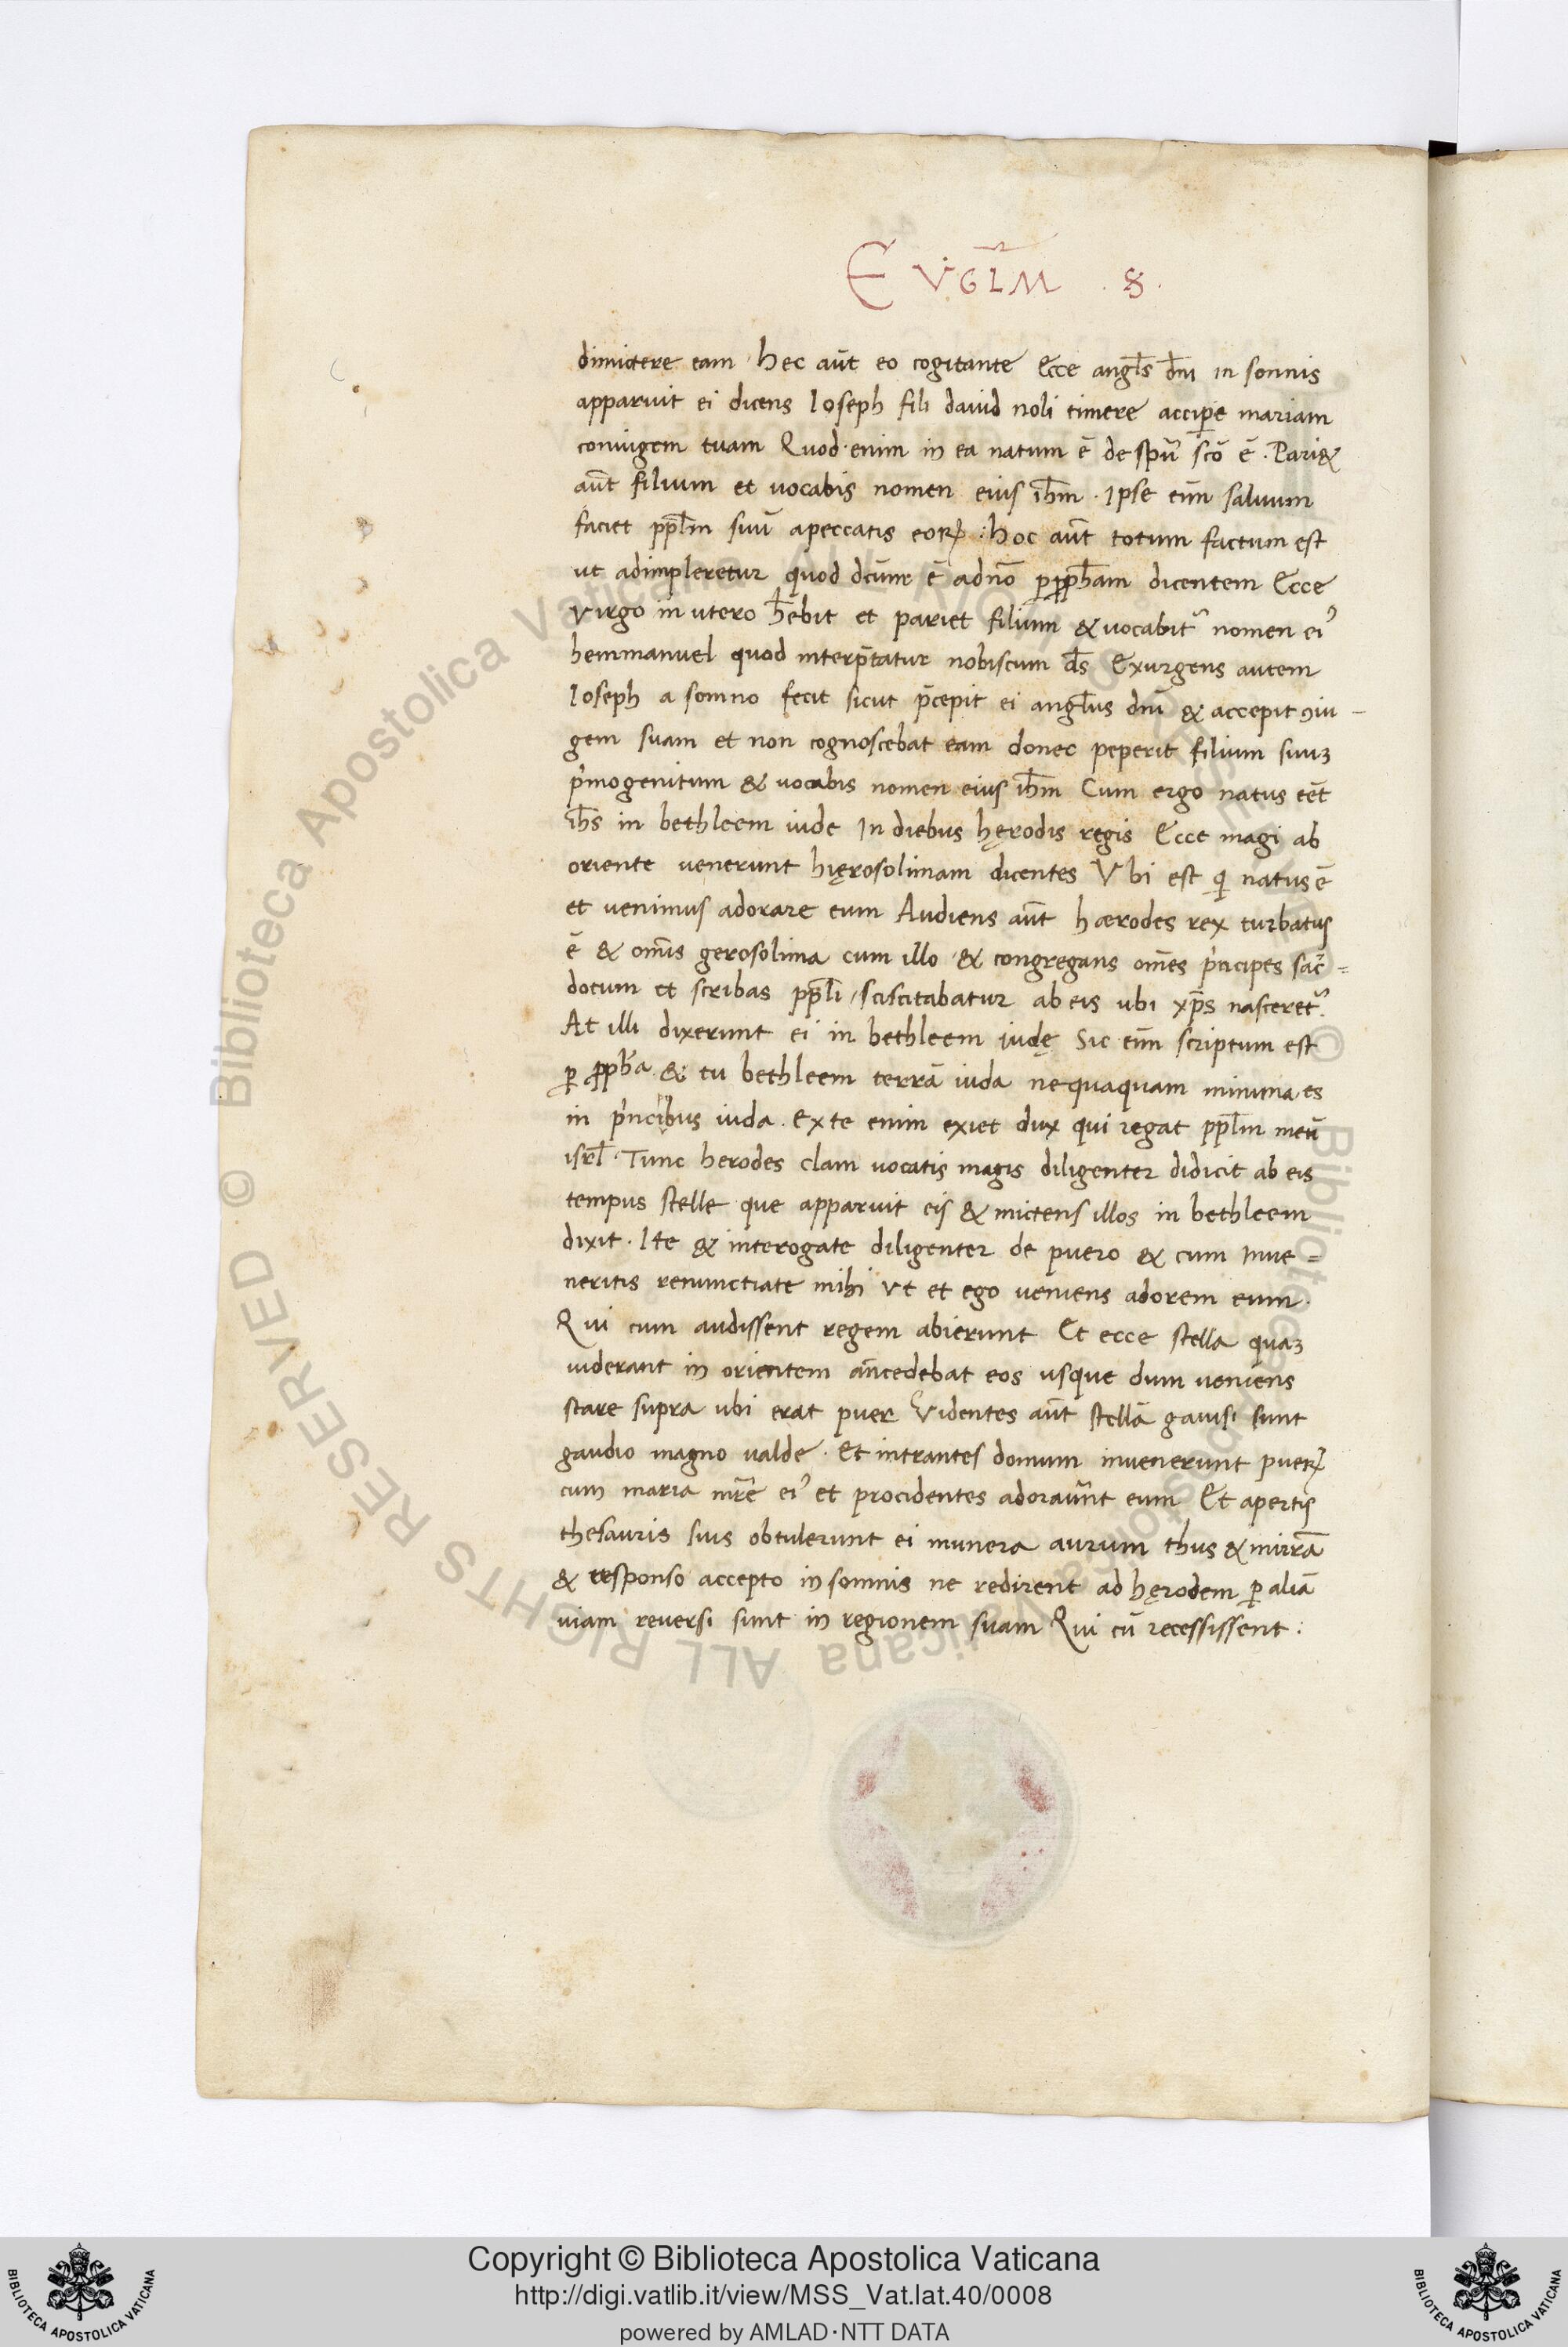 EVGL̅M · 8 ·
dimictere eam · hec au̅t eo cogitante Ecce angl̅s dn̅i in somnis
apparuit ei dicens Ioseph fili dauid noli timere accipe mariam
coniugem tuam Quod enim in ea natum e̅ de spu̅ sco̅ e̅ . Pari&
au̅t filium et uocabis nomen eius ih̅m . Ipse eni̅m saluum
faciet ppl̅m suu̅ apeccatis eoꝝ : hoc au̅t totum factum est
ut adimpleretur quod dc̅um e̅ adn̅o ꝑꝓph̅am dicentem Ecce
virgo in utero h̅ebit et pariet filium & vocabit᷑ nomen eiꝰ
hemmanuel quod interp̅tatur nobiscum ds̅ Exurgens autem
Ioseph a somno fecit sicut p̅cepit ei angl̅us dn̅i & accepit ꝯiu -
gem suam et non cognoscebat eam donec peperit filium suuꝫ
p̍mogenitum & uocabis nomen eius ih̅m Cum ergo natus ee̅t
ih̅s in bethleem iude In diebus hęrodis regis Ecce magi ab
oriente uenerunt hięrosolimam dicentes Vbi est qi natus e̅
et uenimus adorare eum Audiens au̅t haerodes rex turbatus
e̅ & omi̅s gerosolima cum illo & congregans om̅es p̍ncipes sac̅ =
dotum et scribas ppl̅i / sciscitabatur ab eis ubi xp̅s nasceret᷑.
At illi dixerunt ei in bethleem iudę Sic eni̅m scriptum est
ꝑ ꝓph̅a & tu bethleem terra̅ iuda nequaquam minima es
in p̍ncibus iuda . Ex te enim exiet dux qui regat ppl̅m meu̅
isrl̅ . Tunc herodes clam uocatis magis diligenter didicit ab eis
tempus stelle que apparuit eis & mictens illos in bethleem
dixit . Ite & interogate diligenter de puero & cum Inue =
neritis renunctiate mihi Vt et ego ueniens adorem eum .
Qui cum audissent regem abierunt Et ecce stella quaꝫ
uiderant in orientem an̅cedebat eos usque dum ueniens
stare supra ubi erat puer Videntes au̅t stella̅ gauisi sunt
gaudio magno ualde . Et intrantes domum inuenerunt pueꝝ
cum maria mr̅e eiꝰ et procidentes adorau̅nt eum Et apertis
thesauris suis obtulerunt ei munera aurum thus & mirra̅
& responso accepto in somnis ne redirent ad hęrodem ꝑ alia̅
uiam reuersi sunt in regionem suam Qui cu̅ recessissent :
© Biblioteca Apostolica Vaticana ALL RIGHTS RESERVED
BIBLIOTECA APOSTOLICA VATICANA
Copyright © Biblioteca Apostolica Vaticana
http://digi.vatlib.it/view/MSS_Vat.lat.40/0008
powered by AMLAD·NTT DATA
BIBLIOTECA APOSTOLICA VATICANA